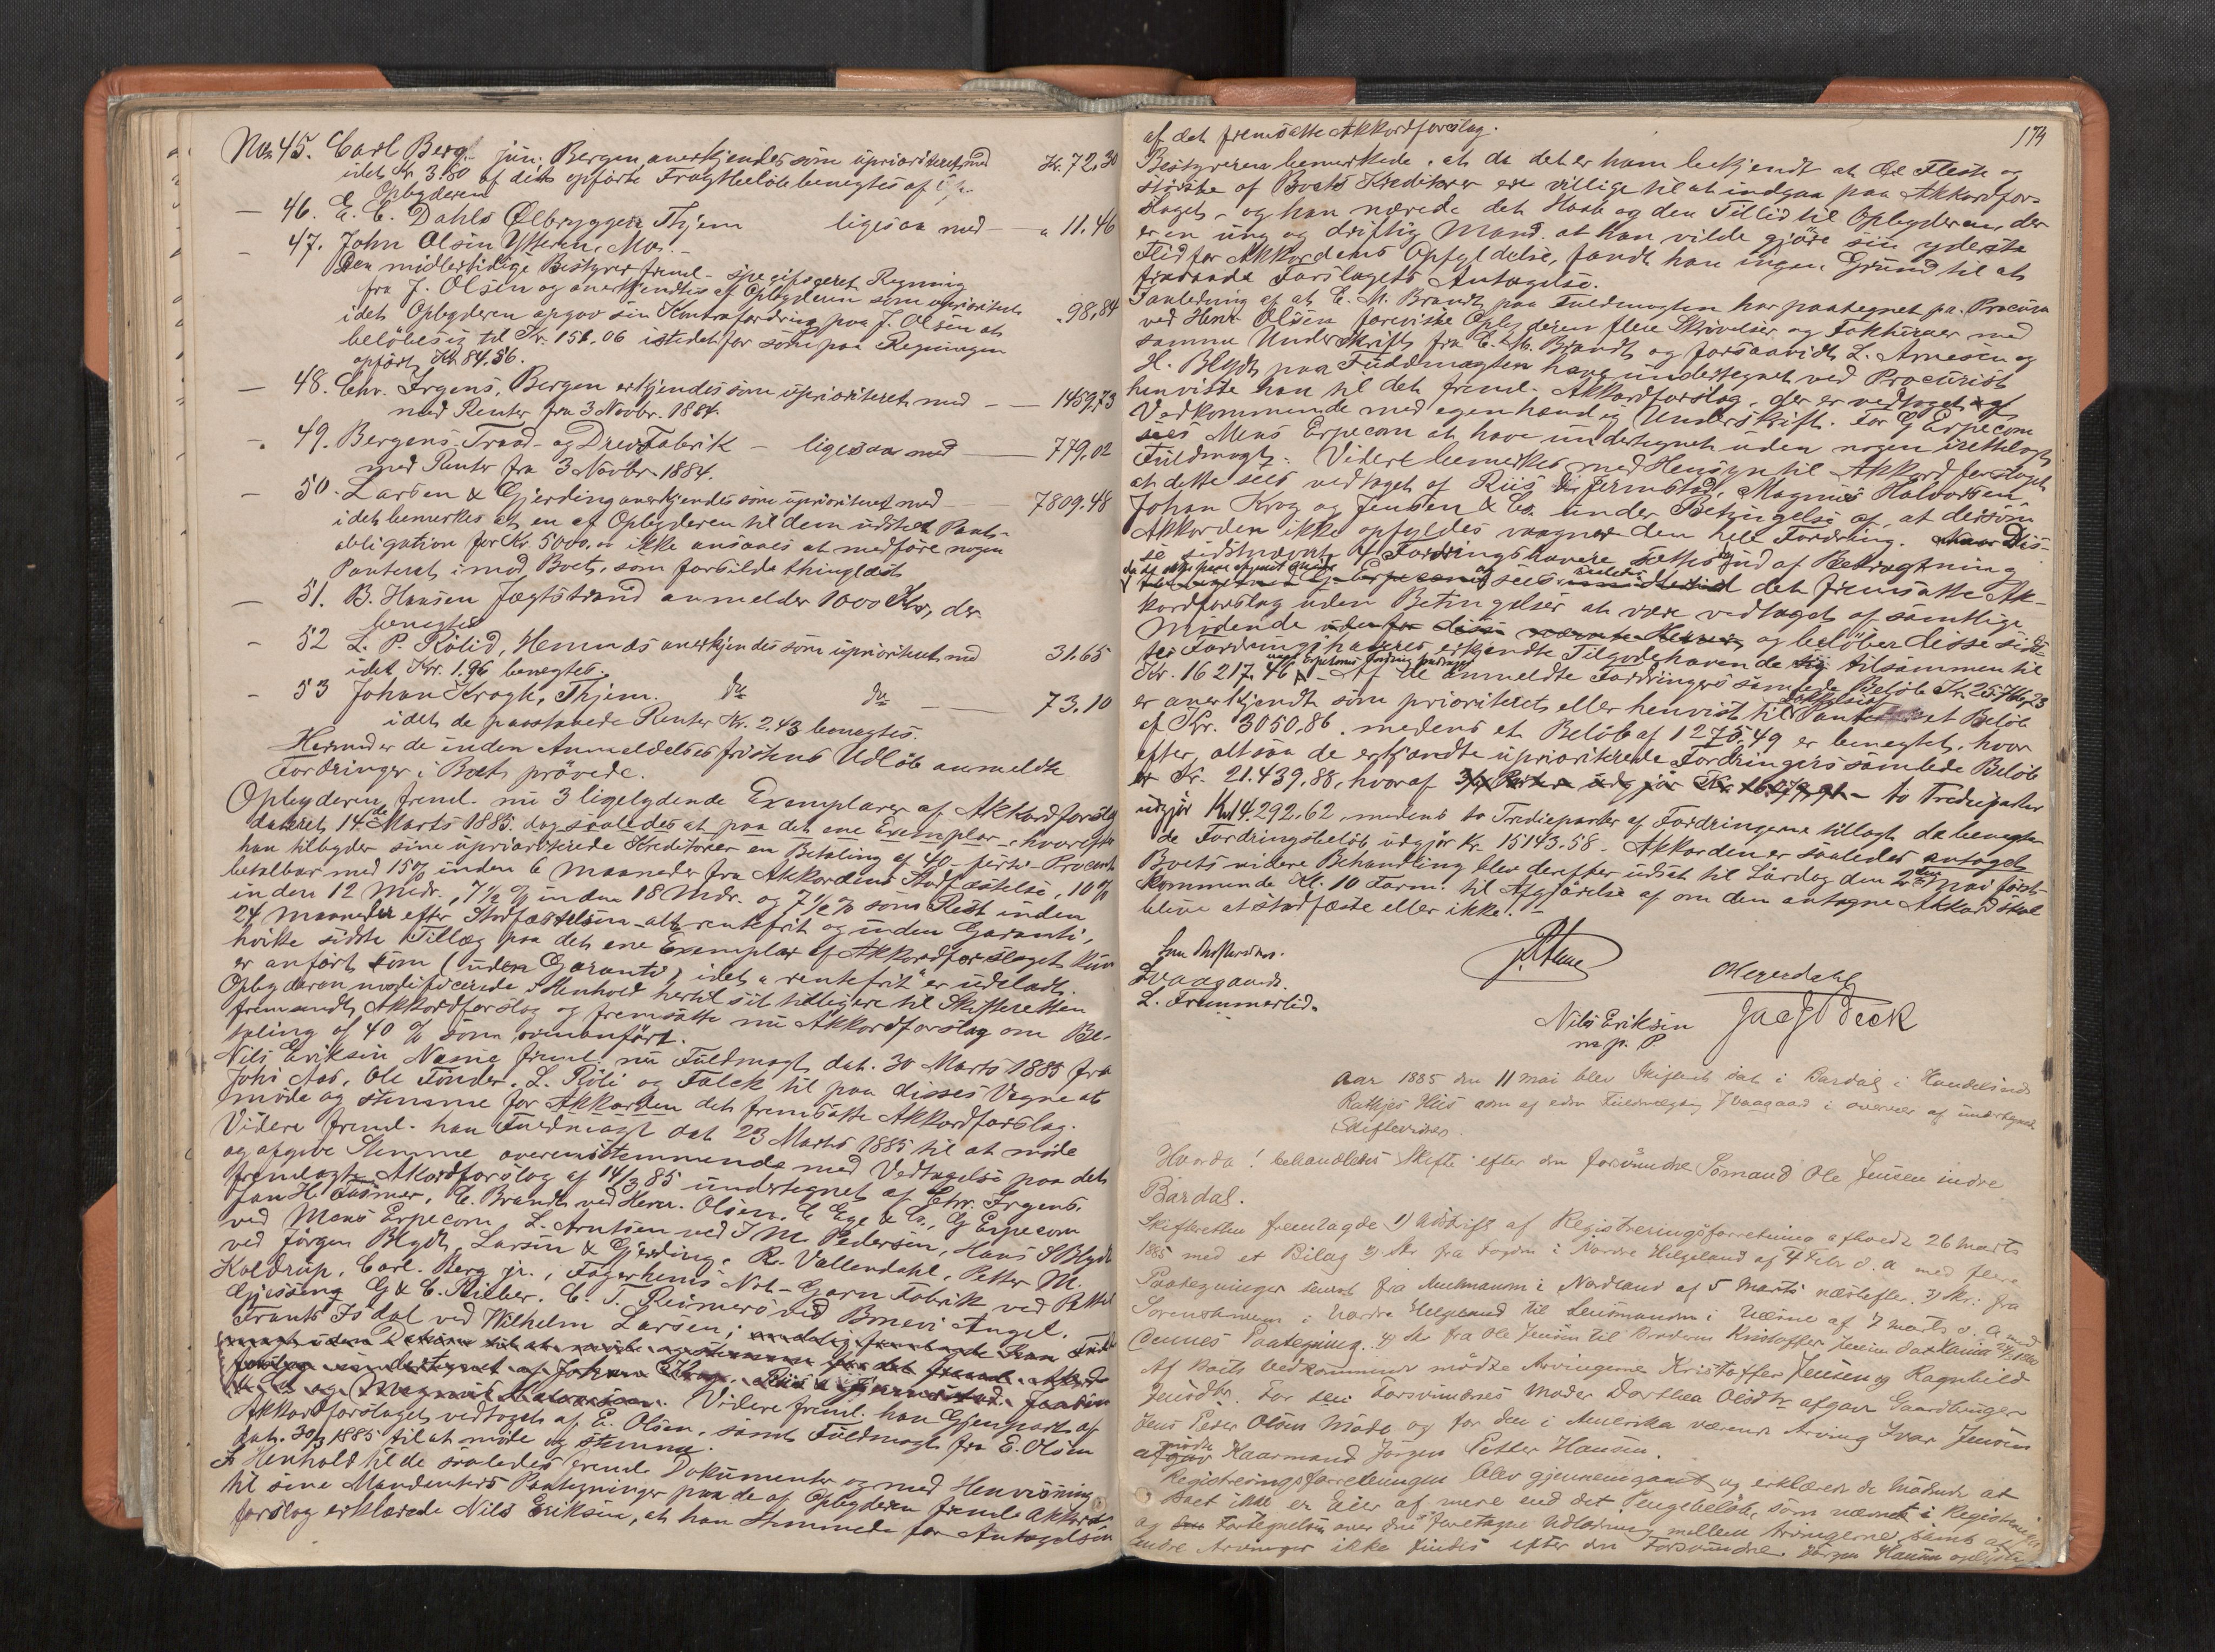 No 45. Carl Berg jun. Bergen anerkjendes som uprioriteret med Kr. 72,30
idet Kr 3.50 af dets opførte Fragtbeløb benegtes af
Opbyderen
— 46. E. C. Dahls Ølbryggeri Thjem ligesaa med — „ 11.46
— 47. John Olsen Ytteren, Mo. —
Den midlertidige Bestyrer freml. specificeret Regning
fra J. Olsen og anerkjendtes af Opbyderen som uprioriteret
idet Opbyderen opgav sin Kontrafordring paa J. Olsen at „ 98,84
beløbe sig til Kr. 151.06 istedetfor som paa Regningen
opført Kr. 84.56.
— 48. Chr. Irgens, Bergen erkjendes som uprioriteret med — 1489,73
med Renter fra 3 Novbr. 1884.
— 49. Bergens Traad- og Drevfabrik — ligesaa med — 779,02
med Renter fra 3 Novbr 1884.
— 50. Larsen & Gjerding anerkjendes som uprioriteret med — 7809.48
idet bemerkes at en af Opbyderen til dem udstedt Pante-
obligation for Kr 5000, ikke ansaaes at medføre nogen
Panteret imod Boet, som forsilde thinglæst
— 51. B. Hansen Jægtstrand anmelder 1000 Kr, der
benegtes
— 52 L. P. Rølid, Hemnes anerkjendes som uprioriteret med 31.65
idet Kr. 1.96 benegtes.
— 53 Johan Krogh, Thjem. do do — 73.10
idet de paastaaede Renter Kr. 2.43 benegtes.
Herunder de inden Anmeldelsesfristens Udløb anmeldte
Fordringer i Boet prøvede.
Opbyderen freml. nu 3 ligelydende Exemplarer af Akkordforslag
dateret 14de Marts 1885. dog saaledes at paa det ene Exemplar — hvorefter
han tilbyder sine uprioriterede Kreditorer en Betaling af 40 — førti — Procent
betalbar med 15% inden 6 Maaneder fra Akkordens Stadfæstelse, 10%
inden 12 Mdr., 7½ % inden 18 Mdr. og 7½ % som Rest inden
24 Maaneder efter Stadfæstelsen — alt rentefrit og uden Garanti,
hvilke sidste Tillæg paa det ene Exemplar af Akkordforslaget kun
er anført som (uden Garanti) idet „rentefrit" er udeladt.
Opbyderen modificerede i Henhold hertil sit tidligere til Skifteretten
fremsendte Akkordforslag og fremsatte nu Akkordforslag om Be-
taling af 40 % som ovenanført.
Nils Eriksen Næsne freml. nu Fuldmagt dat. 30 Marts 1885 fra
Johs Aas, Ole Tønder, L. Røli og Falck til paa disses Vegne at
møde og stemme for Akkorden det fremsatte Akkordforslag.
Videre freml. han Fuldmagt dat 23 Marts 1885 til at møde
og afgive Stemme overensstemmende med Vedtagelse paa det
fremlagte Akkordforslag af 14/3 85 undertegnet af Chr. Irgens,
Jan H. , C. Brandt ved Henr. Olsen, C Ege & Co, G Erpecom
ved Mons Erpecom, L. Arntsen ved J M. Pedersen, Hans S Blydt
ved Jørgen Blydt, Larsen & Gjerding, R. Vallendahl, Petter M.
Koldrup, Carl Berg jr., Fagerheims Not- Garn Fabrik ved
Gjessing G & C. Rieber, C. T. Reimers ved Brnevi Angel,
Frantz Isdal ved Wilhelm Larsen;
Videre freml. han Gjenpart af
Akkordforslaget vedtaget af E. Olsen, samt Fuldmagt fra E. Olsen
dat. 30/3 1885 til at møde og stemme.
I Henhold til de saaledes freml. Dokumenter og med Henvisning
til sine Mandanters Paategninger paa de af Opbyderen freml. Akkord-
forslag erklærede Nils Eriksen, at han stemmede for Antagelsen
174
af det fremsatte Akkordforslag.
Bestyreren bemerkede, at da det er ham bekjendt at de Fleste og
største af Boets Kreditorer ere villige til at indgaa paa Akkordfor-
slaget, og han nærede det Haab og den Tillid til Opbyderen, der
er en ung og driftig Mand, at han vilde gjøre sin yderste
Flid for Akkordens Opfyldelse, fandt han ingen Grund til at
fraraade Forslagets Antagelse.
I Anledning af at C. M. Brandt paa Fuldmagten har paategnet pa. Procura
ved Henr. Olsen foreviste Opbyderen flere Skrivelser og Fakturaer med
samme Underskrift fra C. M. Brandt og forsaavidt L. Arnesen og
H. Blydt paa Fuldmagten have undertegnet ved Procurist
henviste han til det freml. Akkordforslag, der er vedtaget af
Vedkommende med egenhændig Underskrift. For G Erpecom
sees Mons Erpecom at have undertegnet uden nogen irettelagt
Fuldmagt. Videre bemerkes med Hensyn til Akkordforslaget
at dette sees vedtaget af Riis Fermstad, Magnus Halvorsen,
Johan Krog og Jensen & Co. under Betingelse af, at dersom
Akkorden ikke opfyldes vaagner den hele Fordring. Dis-
se sidstnævnte 4 Fordringshavere sættes ud af Betragtning
da de ikke have afgivet
og sees det fremsatte Ak-
kordforslag uden Betingelser at være vedtaget af samtlige
Mødende og beløber disse sidst-
 Fordringshaveres erkjendte Tilgodehavende sig tilsammen til
Kr. 16217,46 — Af de anmeldte Fordringers samlede Beløb Kr. 25766,23
er anerkjendt som prioriteret eller henvist til et Beløb
af Kr. 3050,86, medens et Beløb af 1275.49 er benegtet, hvor
efter altsaa de erkjendte uprioriterede Fordringers samlede Beløb
er Kr. 21.439,88, hvoraf to Trediepartar
udgjør Kr 14.292.62, medens to Trediepartar af Fordringerne tillagt de benegte-
de Fordringsbeløb udgjør Kr. 15143.58. Akkorden er saaledes antaget
Boets videre Behandling blev derefter udsat til Lørdag den 2den Mai først-
kommende Kl. 10 Form. til Afgjørelse af om den antagne Akkord skal
blive at stadfæste eller ikke. —
Som Skiftevidner.
Svaagaard.
L. Frammerlid.
Meyerdahl
Nils Eriksen
m. p. P
Jac J Beck
Aar 1885 den 11 mai blev Skifteret sat i Bardal i Handelsmd
Rathjes Hus adm af edsv Fuldmægtig i overvær af undertegnede
Skiftevidner.
Hvorda! behandledes Skifte efter den forsvundne Sømand Ole Jensen indre
Bardal.
Skifteretten fremlagde 1) Udskrift af Registreringsforretning afholdt 26 Marts
1885 med et Bilag 2) Skr fra Fogden i Nordre Helgeland af 4 Febr d. a med flere
Paategninger senest fra Amtmanden i Nordland af 5 Marts næstefter. 3) Skr: fra
Sorenskriveren i Nordre Helgeland til Lensmanden i Næsne af 7 Marts d. a med
dennes Paategning. 4) Skr fra Ole Jensen til Broderen Kristoffer Jensen dat
Af Boets Vedkommende mødte Arvingerne Kristoffer Jensen og Ragnhild
Jensdtr. For den Forsvundnes Moder Dorthea Olsdtr afgav Gaardbruger
Jens Peder Olsen Møde og for den i Amerika værende Arving Ivar Jensen
mødte Kaarmand Jørgen Petter Hansen.
Registreringsforretningen blev gjennemgaaet og erklærede de Mødende at
Boet ikke er Eier af mere end det Pengebeløb, som nævnt i Registrerings
og Fortegnelsen over den foretagne Udlodning mellem Arvingerne samt at
andre Arvinger ikke findes efter den Forsvundne. Jørgen Hansen oplyste